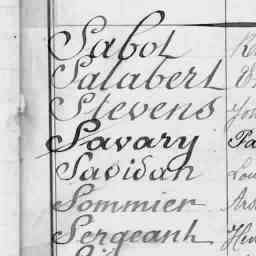 Sabot
Salabert
Stevens
Savary Pa
Savidan Lou
Sommier Ars
Sergeant Hen